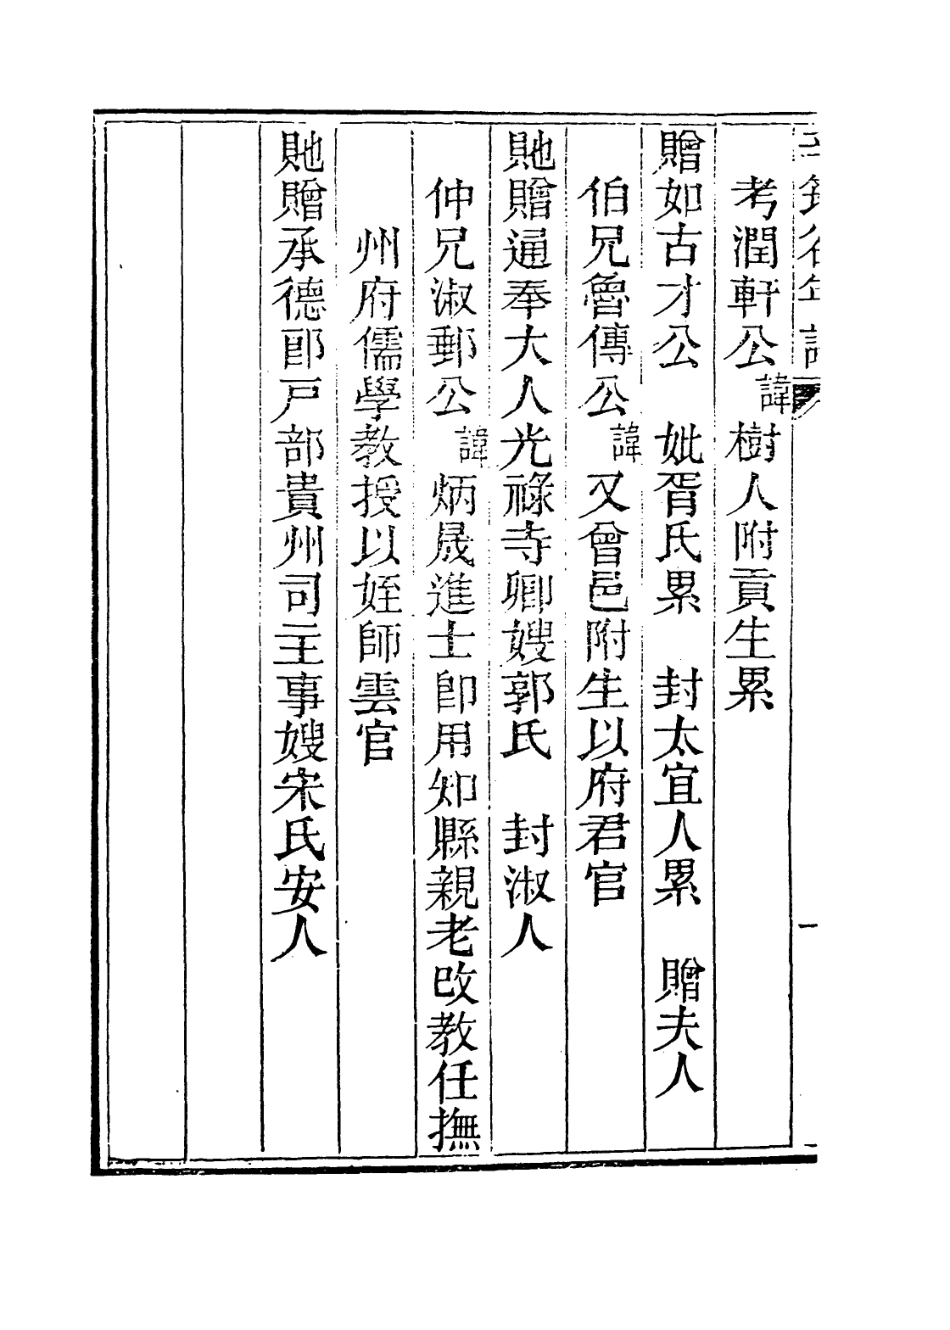 考潤軒公諱樹人附貢生累
贈如古才公　妣胥氏累　封太宜人累　贈夫人
伯兄魯傳公諱又曾邑附生以府君官
貤贈通奉大人光祿寺卿嫂郭氏　封淑人
仲兄淑郵公諱炳晟進士卽用知縣親老改教任撫
州府儒學教授以姪師雲官
貤贈承德郎戸部貴州司主事嫂宋氏安人
一